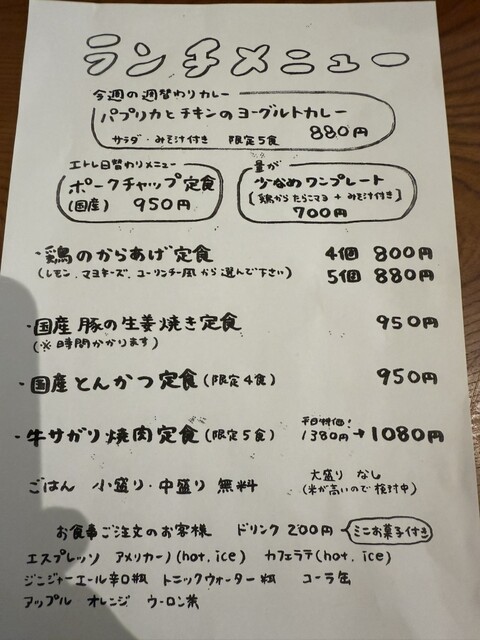 ランチメニュー
今週の週替わりカレー
パプリカとチキンのヨーグルトカレー
サラダ・みそ汁付き 限定5食 880円
エトレ日替わりメニュー
ポークチャップ定食
(国産) 950円
量が
少なめワンプレート
[鶏から たらこマヨ + みそ汁付き]
700円
・鶏のからあげ定食 4個 800円
(レモン、マヨネーズ、ユーリンチー風から選んで下さい) 5個 880円
・国産豚の生姜焼き定食 950円
(※時間かかります)
・国産とんかつ定食(限定4食) 950円
平日特価!
・牛サガリ焼肉定食(限定5食) 1380円→1080円
ごはん 小盛り・中盛り 無料 大盛り なし
(米が高いので検討中)
お食事ご注文のお客様 ドリンク 200円 ミニお菓子付き
エスプレッソ アメリカーノ(hot, ice) カフェラテ(hot, ice)
ジンジャーエール辛口瓶 トニックウォーター瓶 コーラ缶
アップル オレンジ ウーロン茶